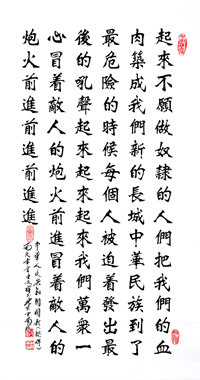 起來不願做奴隸的人們把我們的血
肉築成我們新的長城中華民族到了
最危險的時候每個人被迫着發出最
後的吼聲起來起來起來我們萬衆一
心冒着敵人的炮火前進冒着敵人的
炮火前進前進前進進
中華人民共和國國歌